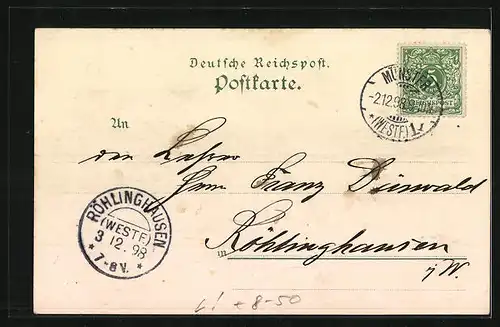 Deutsche Reichspost.
Postkarte.
MÜNSTER
-2.12.98
(WESTF.) 1
An
den Lehrer
Herrn Franz Dünwald
in Röhlinghausen
i/W.
RÖHLINGHAUSEN
(WESTF.)
3 12. 98
* 7-8V. *
8-50